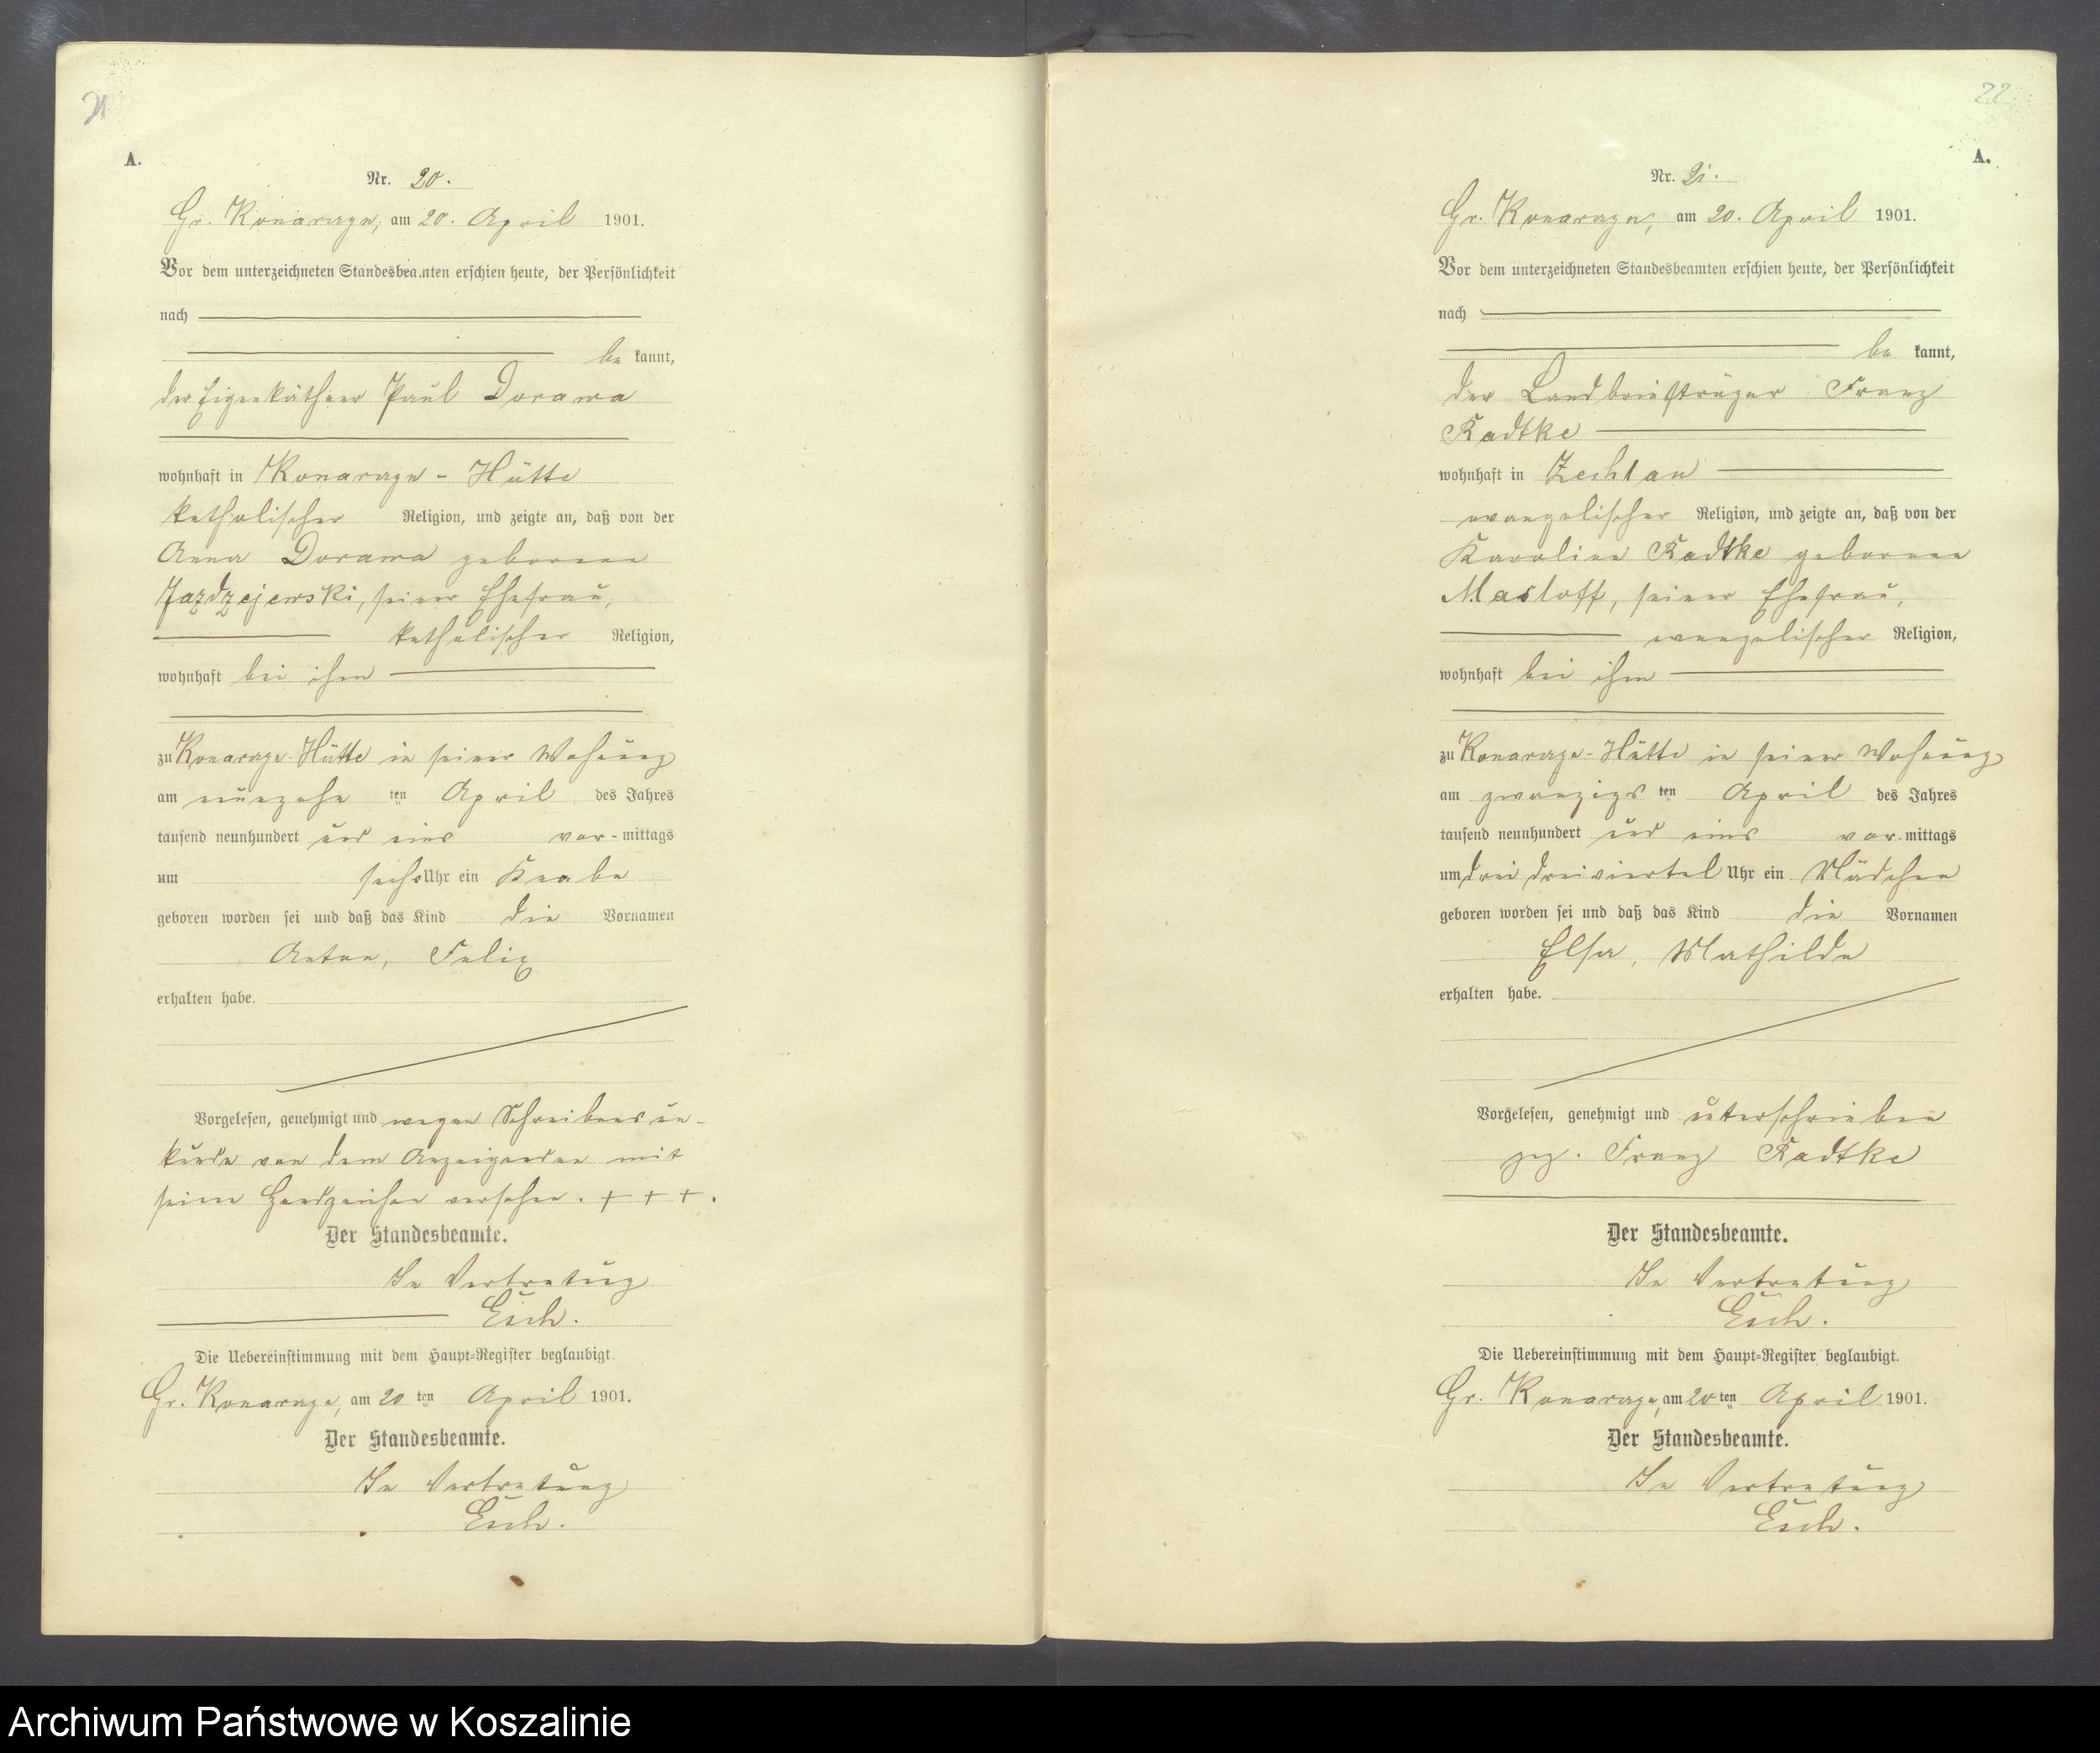 21
A.
Nr. 20.
Gr. Konarczyn, am 20. April 1901.
Vor dem unterzeichneten Standesbeamten erschien heute, der Persönlichkeit
nach
be kannt,
der Eigenkäthner Paul Dorawa
wohnhaft in Konarczyn - Hütte
katholischer Religion, und zeigte an, daß von der
Anna Dorawa geborene
Jazdzejewski, seiner Ehefrau,
katholischer Religion,
wohnhaft bei ihm
zu Konarczyn-Hütte in seiner Wohnung
am neunzehn ten April des Jahres
tausend neunhundert und eins vor-mittags
um sechs Uhr ein Knabe
geboren worden sei und daß das Kind die Vornamen
Anton, Felix
erhalten habe.
Vorgelesen, genehmigt und wegen Schreibens un-
kunde von dem Anzeigenden mit
seinem Handzeichen versehen. + + +.
Der Standesbeamte.
In Vertretung
Esch.
Die Uebereinstimmung mit dem Haupt-Register beglaubigt.
Gr. Konarczyn, am 20 ten April 1901.
Der Standesbeamte.
In Vertretung
Esch.
22
A.
Nr. 21.
Gr. Konarczyn, am 20. April 1901.
Vor dem unterzeichneten Standesbeamten erschien heute, der Persönlichkeit
nach
be kannt,
der Landbriefträger Franz
Radtke
wohnhaft in Zechlau
evangelischer Religion, und zeigte an, daß von der
Karoline Radtke geborene
Masloff, seiner Ehefrau,
evangelischer Religion,
wohnhaft bei ihm
zu Konarczyn-Hütte in seiner Wohnung
am zwanzigs ten April des Jahres
tausend neunhundert und eins vor-mittags
um drei dreiviertel Uhr ein Mädchen
geboren worden sei und daß das Kind die Vornamen
Elsa, Mathilde
erhalten habe.
Vorgelesen, genehmigt und unterschrieben
gez. Franz Radtke
Der Standesbeamte.
In Vertretung
Esch.
Die Uebereinstimmung mit dem Haupt-Register beglaubigt.
Gr. Konarczyn, am 20 ten April 1901.
Der Standesbeamte.
In Vertretung
Esch.
Archiwum Państwowe w Koszalinie